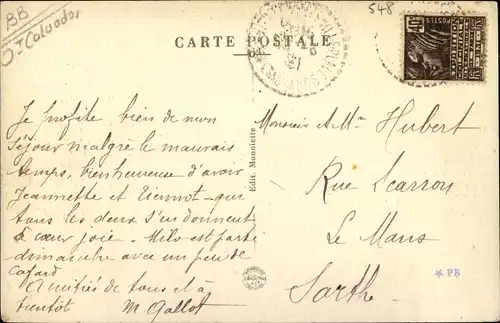 BB
Calvados
548
CARTE POSTALE
POSTES
Je profite bien de mon
séjour malgré le mauvais
temps, bienheureuse d'avoir
Jeannette et qui
tous les deux s'en donnent
à cœur joie. Milo est parti
dimanche avec un peu de
cafard
Amitiés de tous et à
bientôt M. Gallot
Edit. Monniette
Monsieur et Mme Hubert
Rue Scarron
Le Mans
Sarthe
* PB